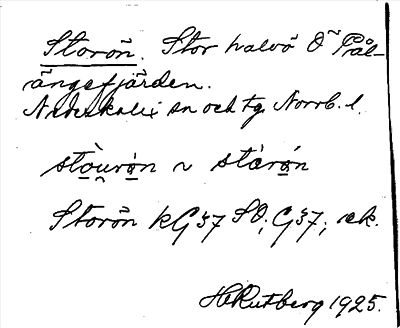 Storön. Stor halvö Ö Pål-
ängefjärden.
Nederkalix sn och tg. Norrb. l.
Storön KG 37 SO; G 37; ek.
H Rutberg 1925.